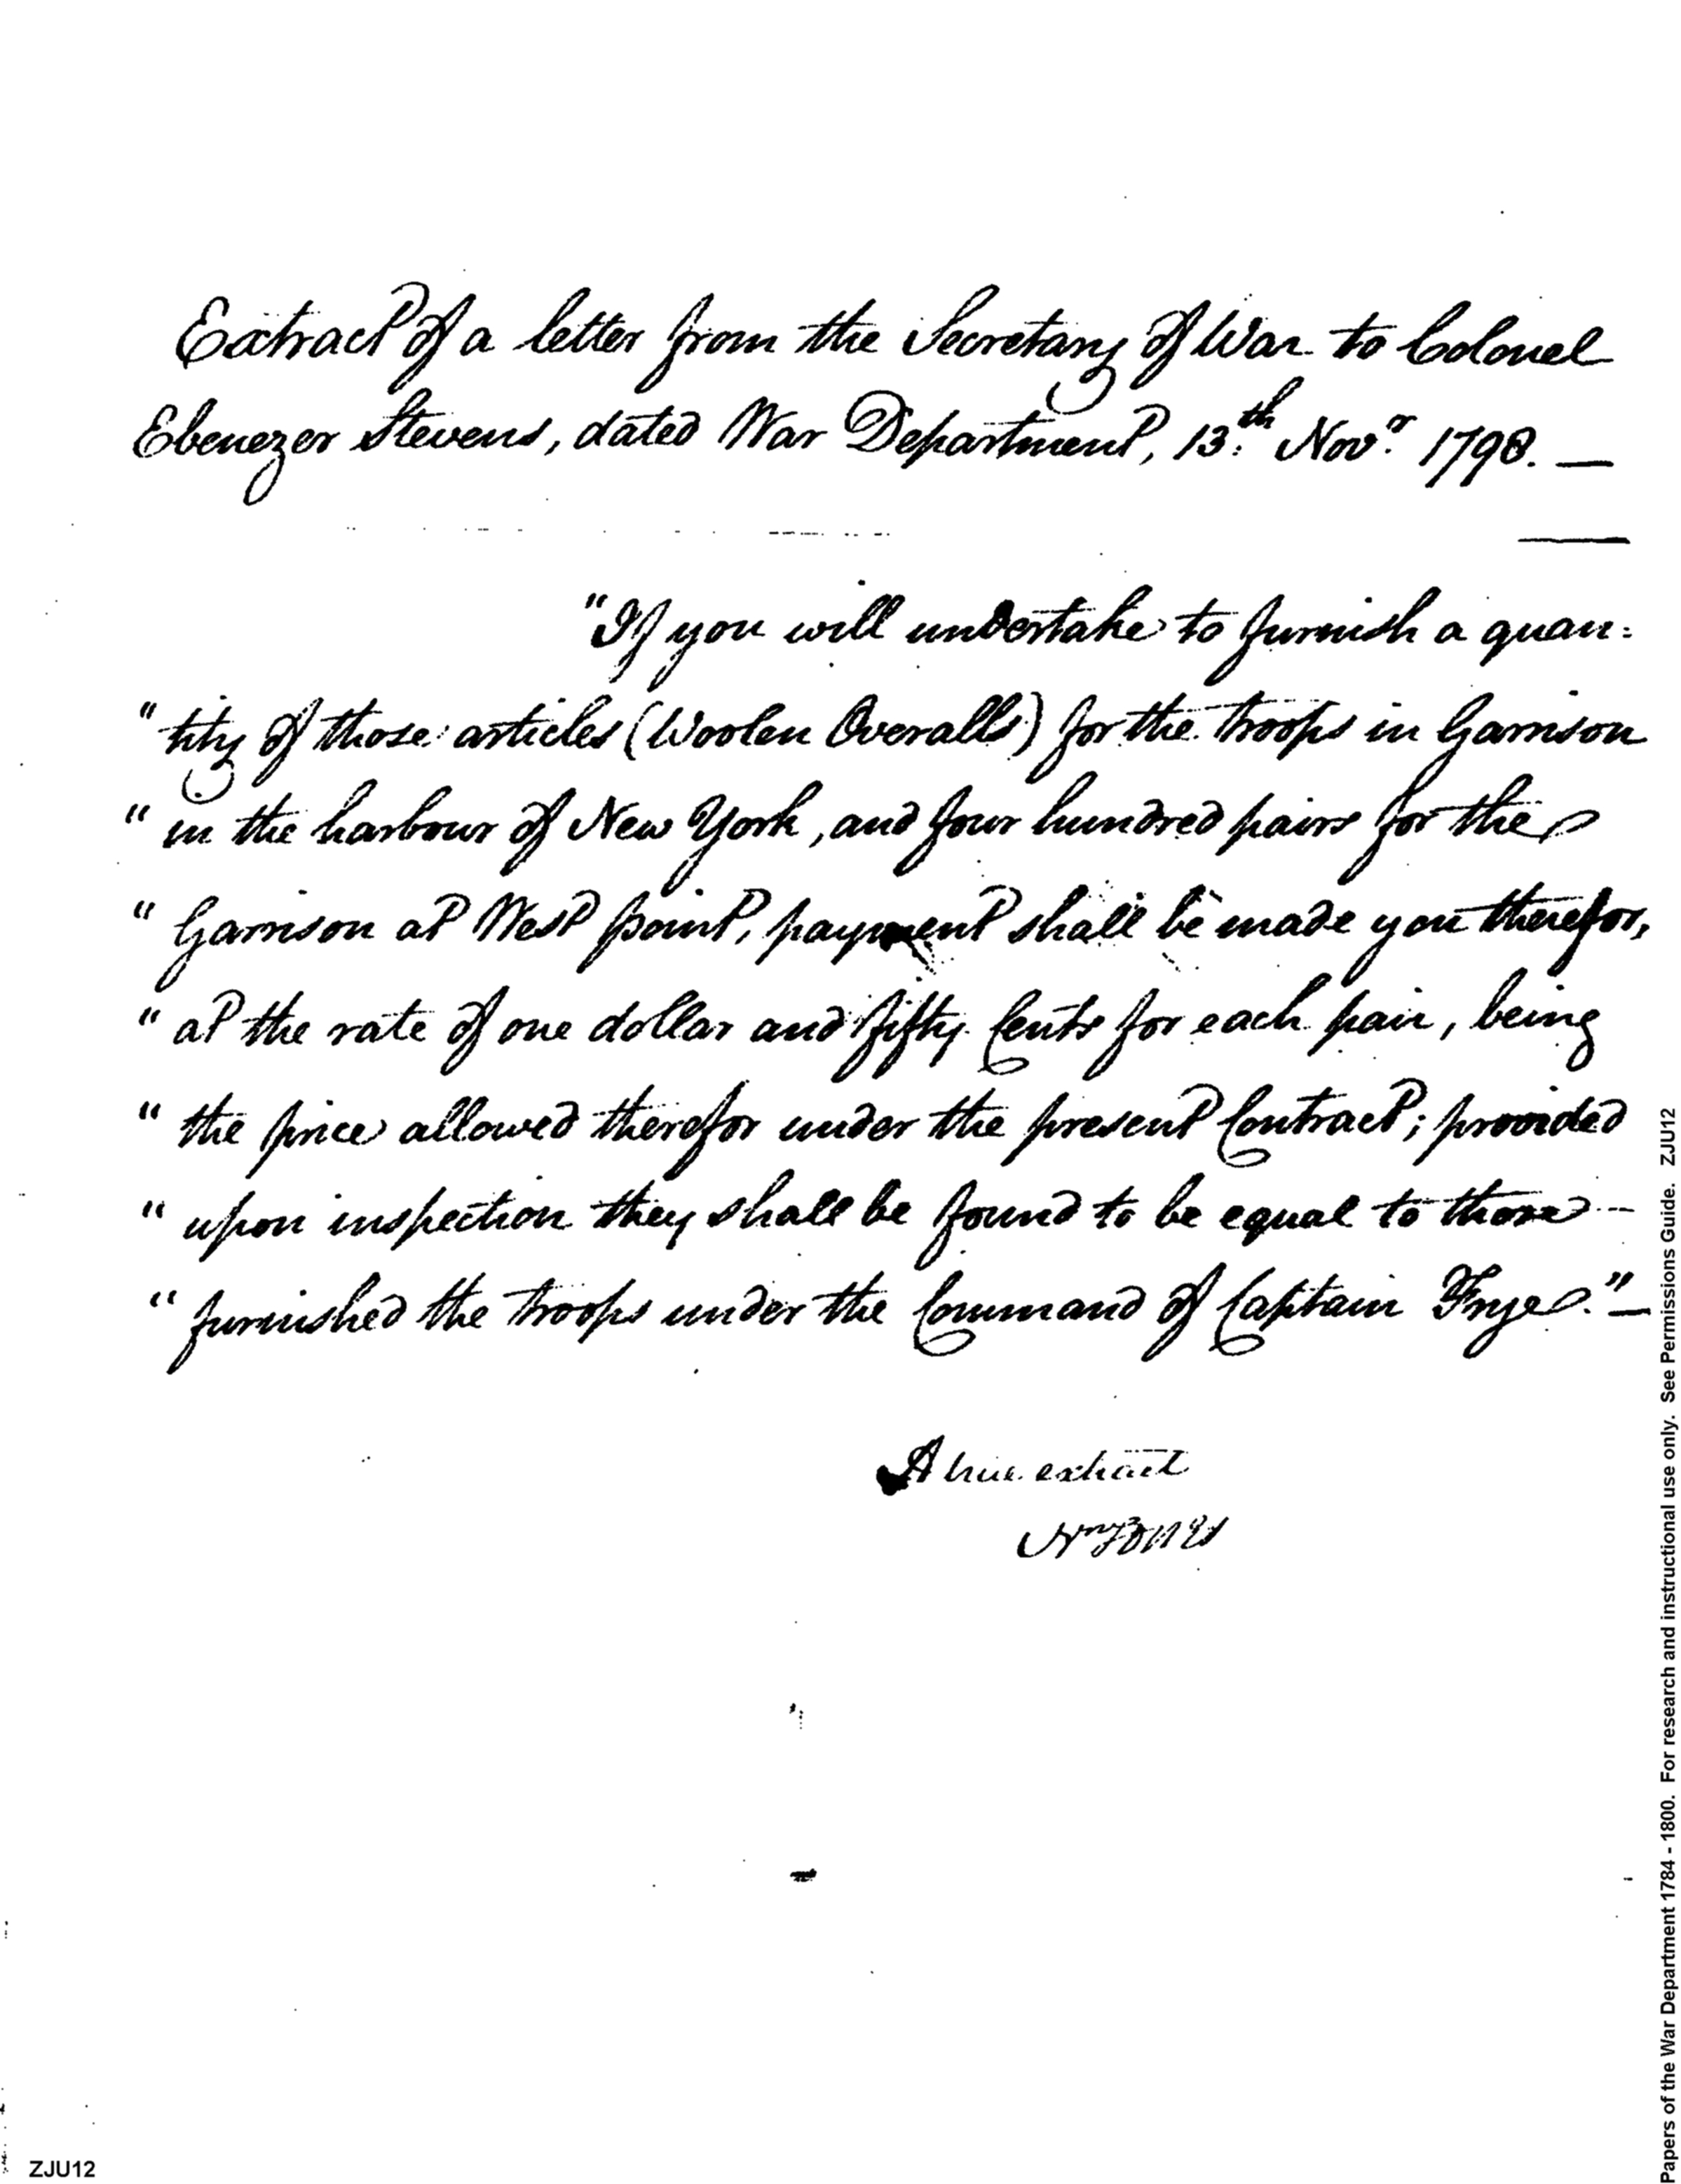 Extract of a letter from the Secretary of War to Colonel
Ebenezer Stevens, dated War Department, 13.th Nov.r 1798. —
"If you will undertake to furnish a quan:
" tity of those articles (Woolen Overalls) for the troops in Garrison
" in the harbour of New York, and four hundred pairs for the
" Garrison at West point, payment shall be made you therefor,
" at the rate of one dollar and fifty Cents for each pair, being
" the price allowed therefor under the present Contract; provided
" upon inspection they shall be found to be equal to those
" furnished the troops under the Command of Captain Frye." —
A true extract
ZJU12
Papers of the War Department 1784 - 1800. For research and instructional use only. See Permissions Guide. ZJU12